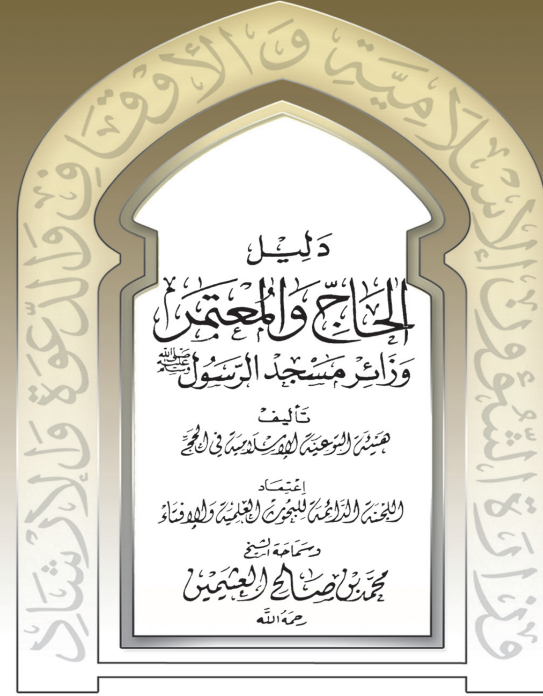 وزارة الشؤون الإسلامية والأوقاف والدعوة والإرشاد
دَلِيْل
الحَاجّ وَالمُعْتَمِر
وَزَائِر مَسْجِد الرَّسُول ﷺ
تَأليفْ
هَيْئَة التَّوعيَة الإسْلَاميَة في الحَجّ
إعْتِمَاد
اللجنَة الدَّائمَة للبحُوث العِلْميَة وَالإفتَاء
وسَمَاحَة الشيخ
محَمَّد بن صَالح العثيمين
رحمَهُ اللَّه